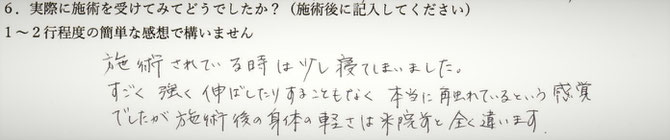 6．実際に施術を受けてみてどうでしたか？（施術後に記入してください）
1～2行程度の簡単な感想で構いません
施術されている時は少し寝てしまいました。
すごく強く伸ばしたりすることもなく本当に触れているという感覚
でしたが施術後の身体の軽さは来院前と全く違います